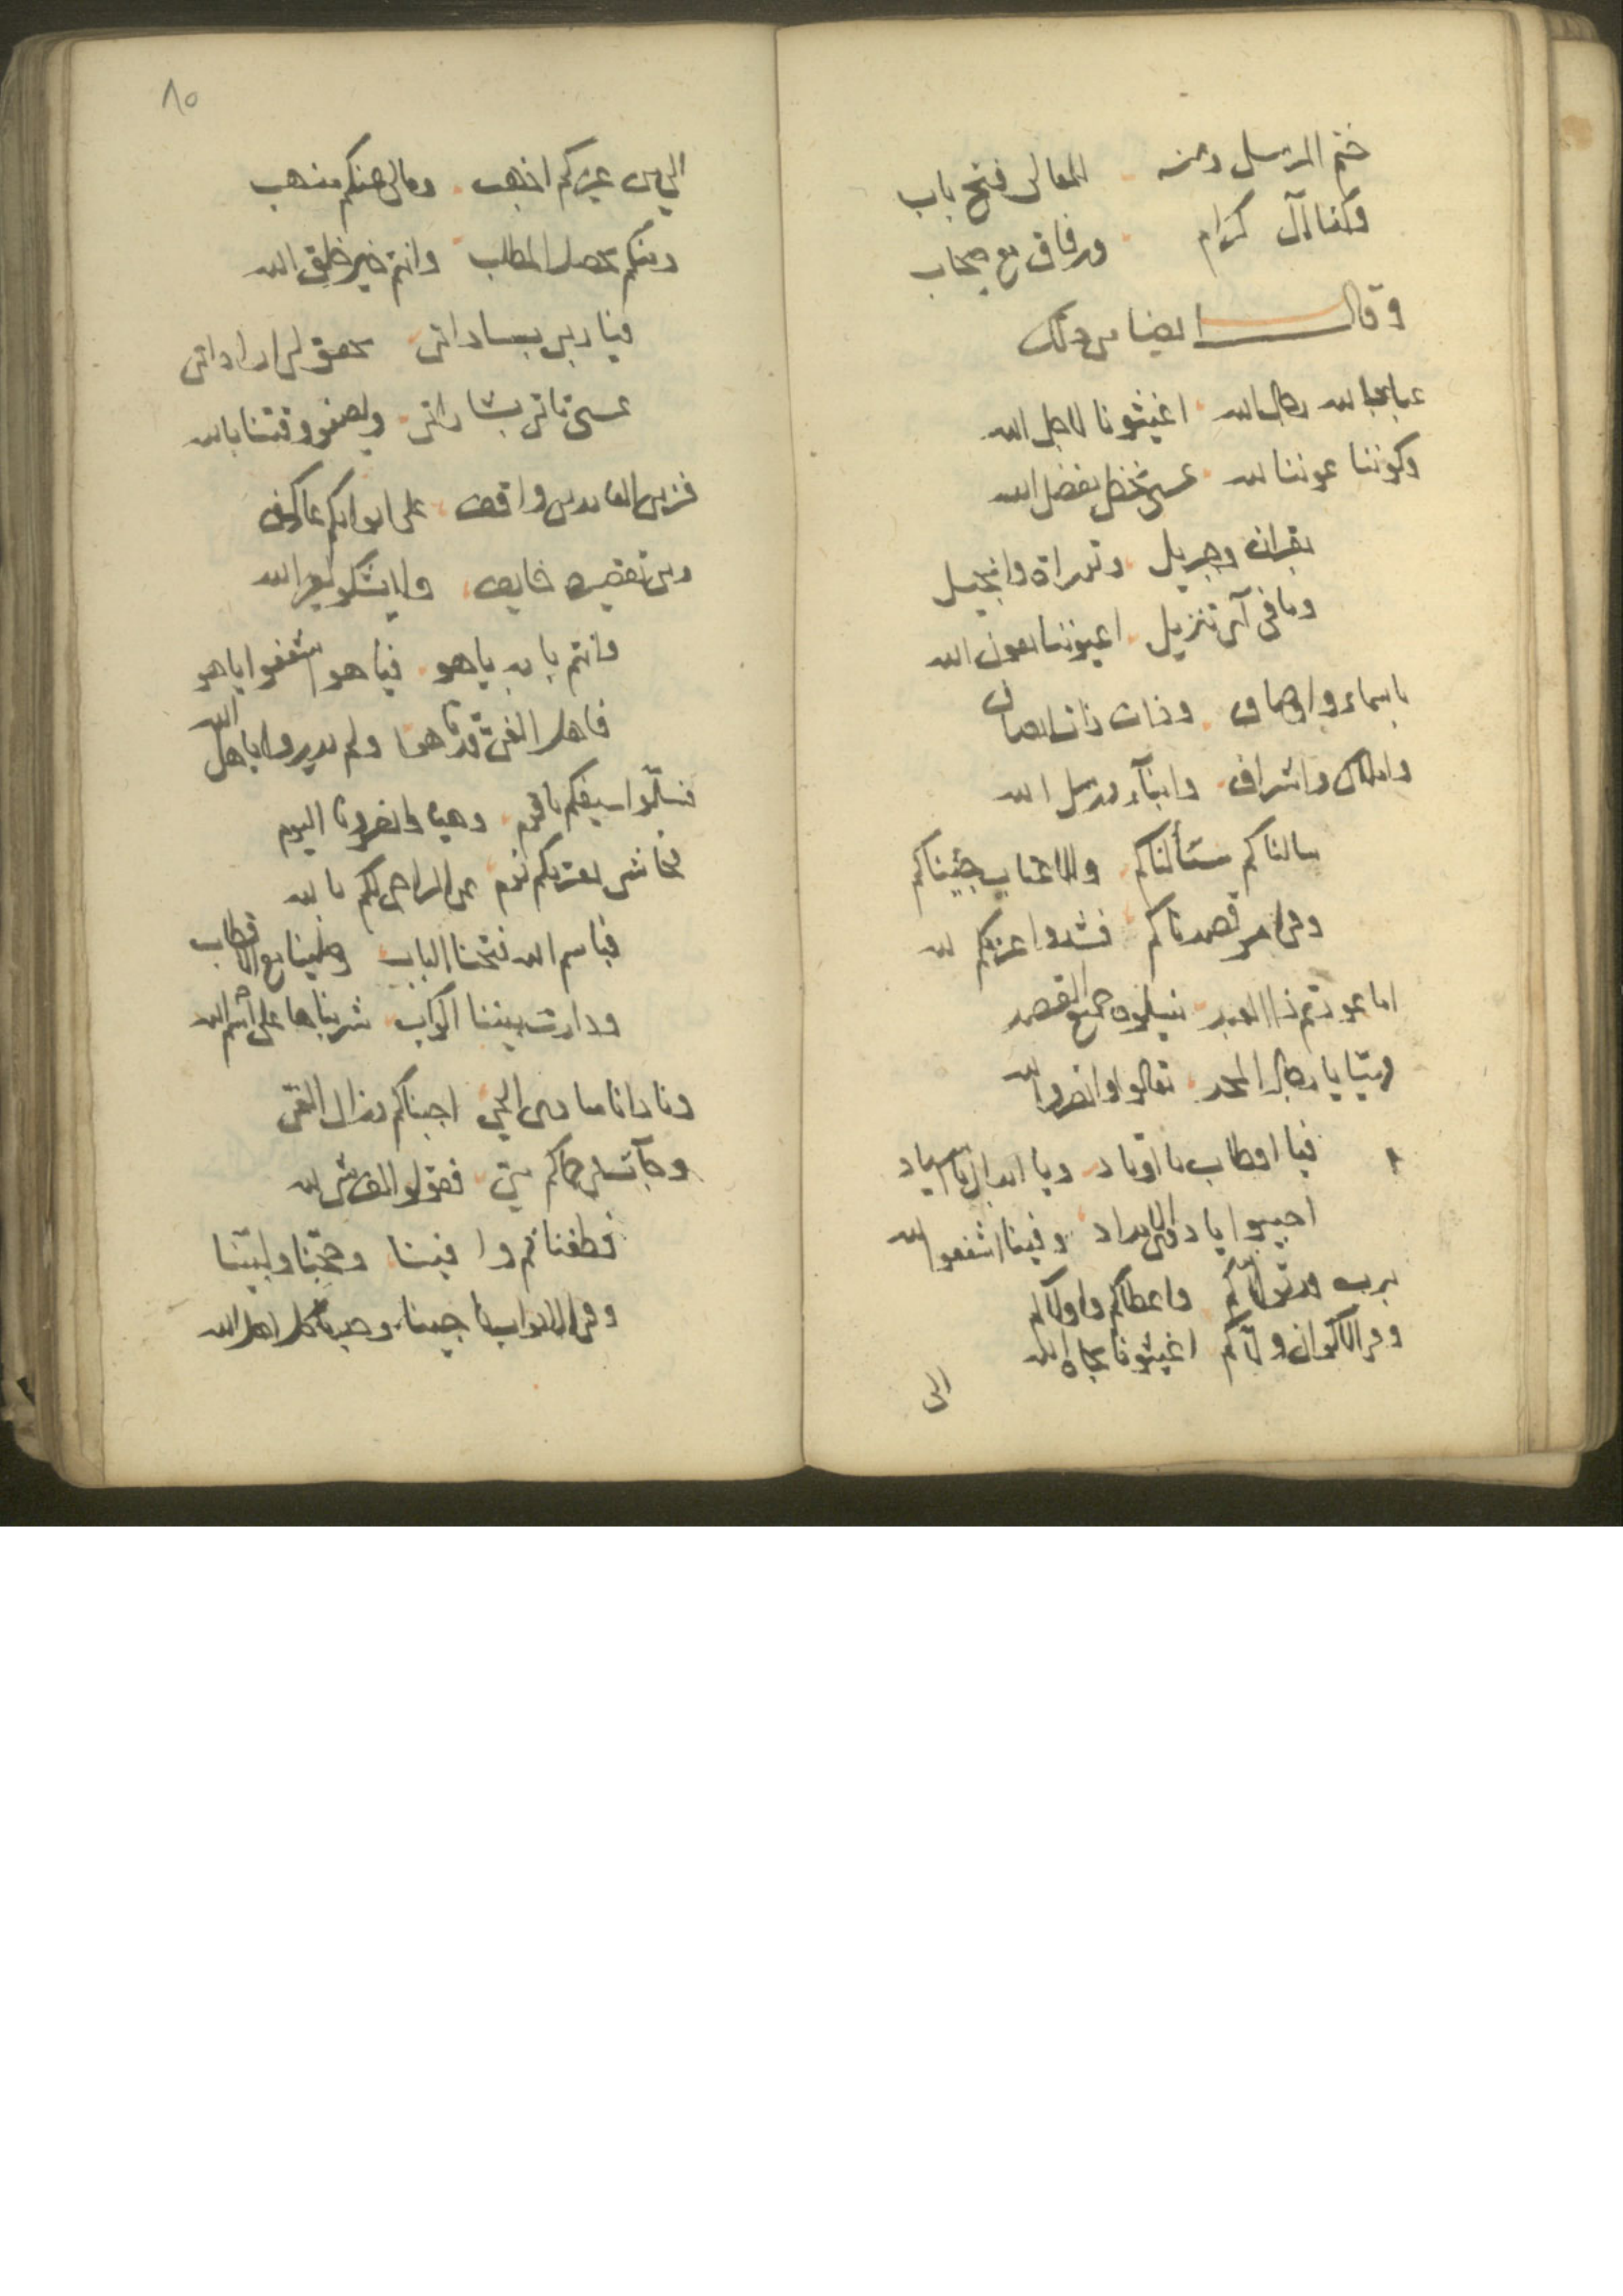 ختم الرسل ومنه المعالى فتح باب
وكذا آل كرام ورفاق مع صحاب
وقال ايضا من ذلك
عباد الله رجال الله اغيثونا لاجل الله
وكونوا عوننا لله عسى نحظى بفضل الله
بقران وجبريل وتوراة وانجيل
وما فى آى تنزيل اعينونا بعون الله
باسماء واوصاف وذات ذات اوصاف
واملاك واشراف وانبآء ورسل الله
سالناكم سألناكم وللاعتاب جيناكم
وفى امر قصدناكم فشدوا عزمكم لله
اما عودتم ذا العبد نيلون جميع القصد
فهيا يا رجال المجد تعالوا وانصروا لله
فيا اقطاب يا اوتاد ويا ابدال يا اسياد
اجيبوا يا ذوى الامداد وفينا اشفعوا لله
برب واعطاكم واولاكم
وفى الاكوان ولاكم اغيثونا بجاه الله
الى
٨٥
الى من غيركم اذهب ومالى عنكم مذهب
ومنكم يحصل المطلب وانتم خير خلق الله
فيا ربى بساداتى تحقق لى اراداتى
عسى تاتى بشاراتى ويصفو وقتنا بالله
فزين العابدين واقف على ابوابكم عاكف
ومن تقصيره خايف ولا يشكو لغير الله
وانتم باب ياهو فيا هو اشفعوا ياهو
فاهل الغى قد تاهوا ولم يدروا باهل الله
فسلوا سيفكم يا قوم وهيا وانصرونا اليوم
فحاشى يعتريكم نوم عن الراجى لكم بالله
فباسم الله فتحنا الباب وصلينا مع الاقطاب
ودارت بيننا اكواب شربناها على اسم الله
ونادانا منادى الحى اجبناكم وزال الغى
وجآت لى حماكم مى فقولوا الف شى لله
فطفنا ثم وافينا وحجينا ولبينا
وفى الابواب ناجينا وصرنا كل اهل الله